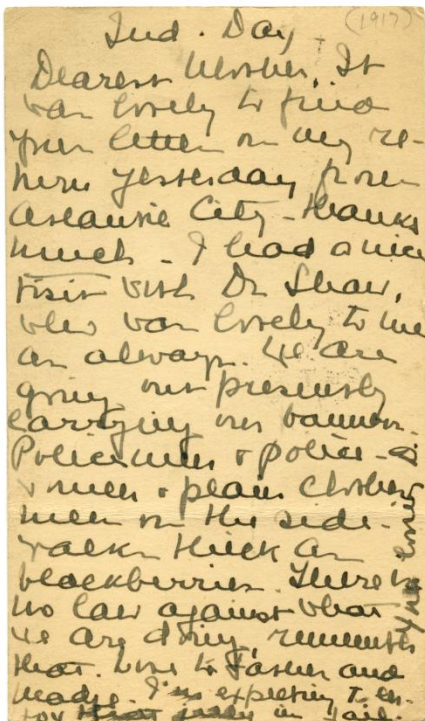 Ind. Day (1917)
Dearest Mother, It
was lovely to find
your letter on my re-
turn yesterday from
Atlantic City - thanks
much - I had a nice
visit with Dr Shaw,
who was lovely to me
as always. We are
going out presently
carrying our banners.
Policemen & police-
women & plain clothes
men on the side-
walk thick as
blackberries. There is
no law against what
we are doing, remember
that. Love to Father and
I'm expecting to en-
joy in jail
Your loving